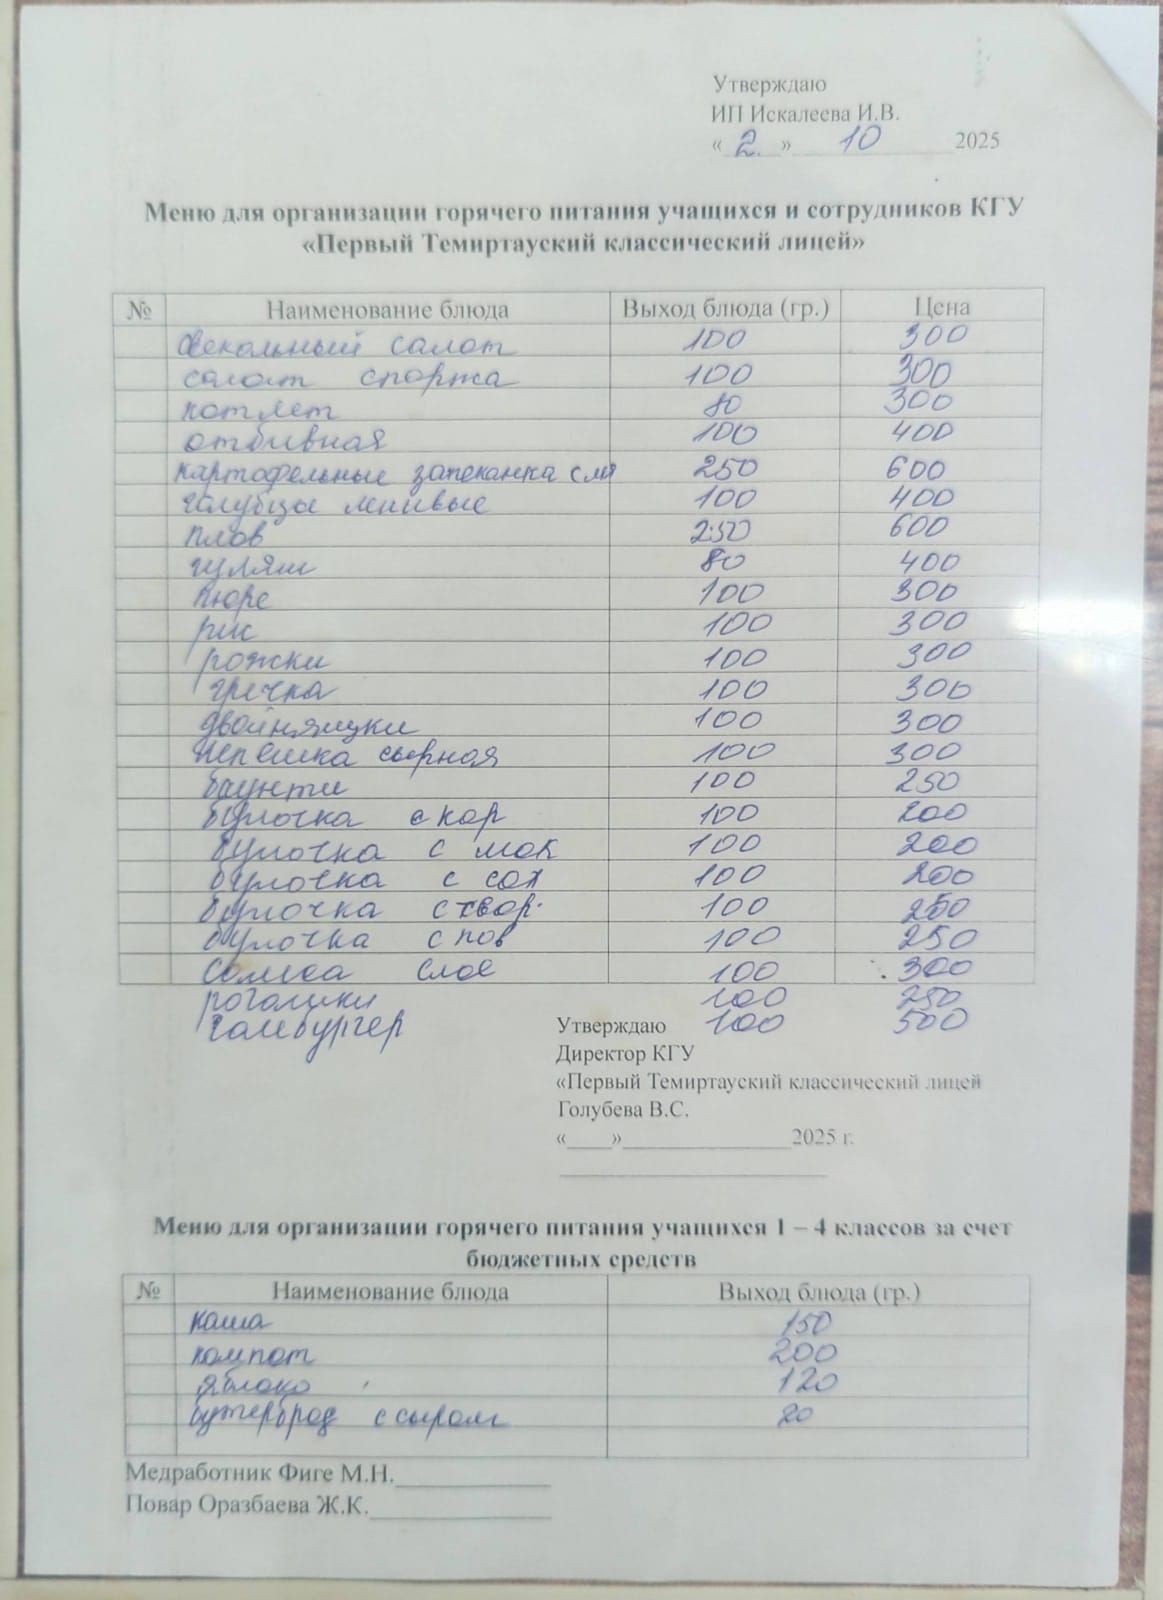 Утверждаю
ИП Искалеева И.В.
« 2. » 10 2025
Меню для организации горячего питания учащихся и сотрудников КГУ
«Первый Темиртауский классический лицей»
№ Наименование блюда Выход блюда (гр.) Цена
свекольный салат 100 300
салат спаржа 100 300
котлет 80 300
отбивная 100 400
картофельные запеканка с мя 250 600
голубцы ленивые 100 400
плов 250 600
гуляш 80 400
пюре 100 300
рис 100 300
рожки 100 300
гречка 100 300
двойняшки 100 300
лепешка сырная 100 300
баунти 100 250
булочка с кор 100 200
булочка с мак 100 200
булочка с сах 100 200
булочка с твор. 100 250
булочка с пов 100 250
самса слое 100 300
рогалики 100 250
гамбургер 100 500
Утверждаю
Директор КГУ
«Первый Темиртауский классический лицей
Голубева В.С.
«____»_______________2025 г.
Меню для организации горячего питания учащихся 1 – 4 классов за счет
бюджетных средств
№ Наименование блюда Выход блюда (гр.)
каша 150
компот 200
яблоко 120
бутерброд с сыром 20
Медработник Фиге М.Н.______________
Повар Оразбаева Ж.К.________________